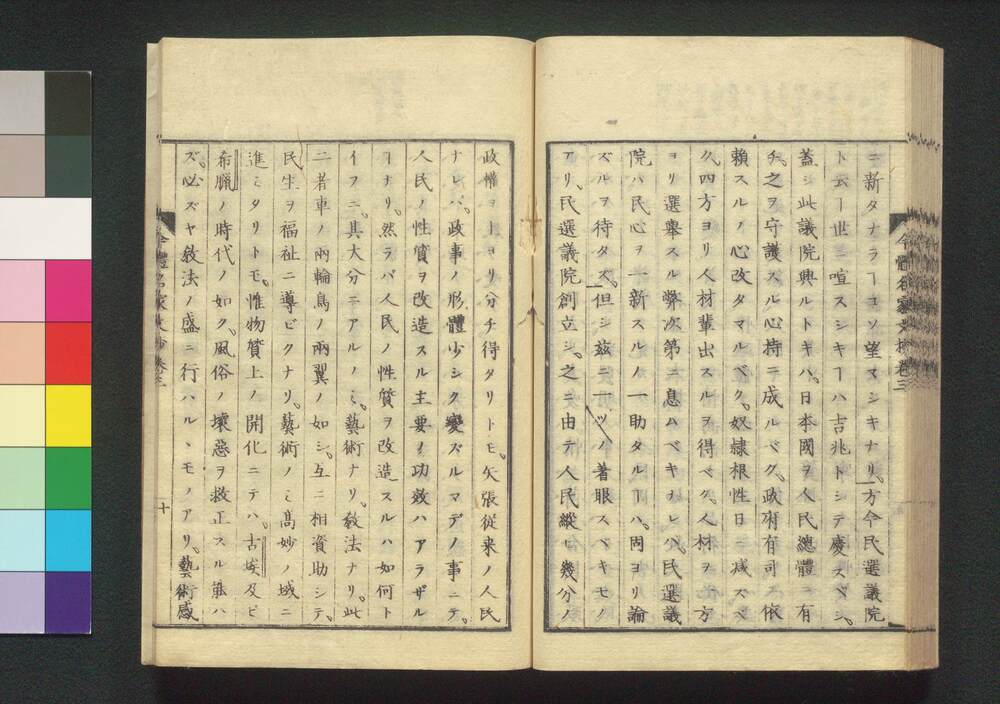 ニ新タナラヿコソ望マシキナリ。方今民選議院
ト云ヿ世ニ喧スシキヿハ吉兆トシテ慶スベシ。
蓋シ此議院興ルトキハ、日本國ヲ人民總體ニ有
チ、之ヲ守護スル心持ニ成ルベク、政府有司ニ依
頼スルノ心改タマルベク、奴隷根性日ニ減スベ
ク、四方ヨリ人材輩出スルヲ得ベク、人材ヲ一方
ヨリ選擧スル弊次第ニ息ムベキナレバ、民選議
院ハ民心ヲ一新スルノ一助タルヿハ、固ヨリ論
ズルヲ待タズ。但シ茲ニ一ツノ著眼スベキモノ
アリ。民選議院創立シ、之ニ由テ人民縱ヒ幾分ノ
今體名家文抄卷三
政權ヲ上ヨリ分チ得タリトモ、矢張従来ノ人民
ナレバ、政事ノ形體少シク變ズルマデノ事ニテ、
人民ノ性質ヲ改造スル主要ノ功效ハアラザル
ヿナリ。然ラバ人民ノ性質ヲ改造スルハ如何ト
イフニ、其大分ニアルノミ、藝術ナリ。敎法ナリ。此
二者車ノ兩輪鳥ノ兩翼ノ如シ。互ニ相資助シテ、
民生ヲ福祉ニ導ビクナリ。藝術ノミ高妙ノ域ニ
進ミタリトモ、惟物質上ノ開化ニテハ、古埃及ビ
希臘ノ時代ノ如ク、風俗ノ壞惡ヲ救正スル能ハ
ズ。必ズヤ敎法ノ盛ニ行ハル丶モノアリ。藝術感
今體名家文抄卷三
十